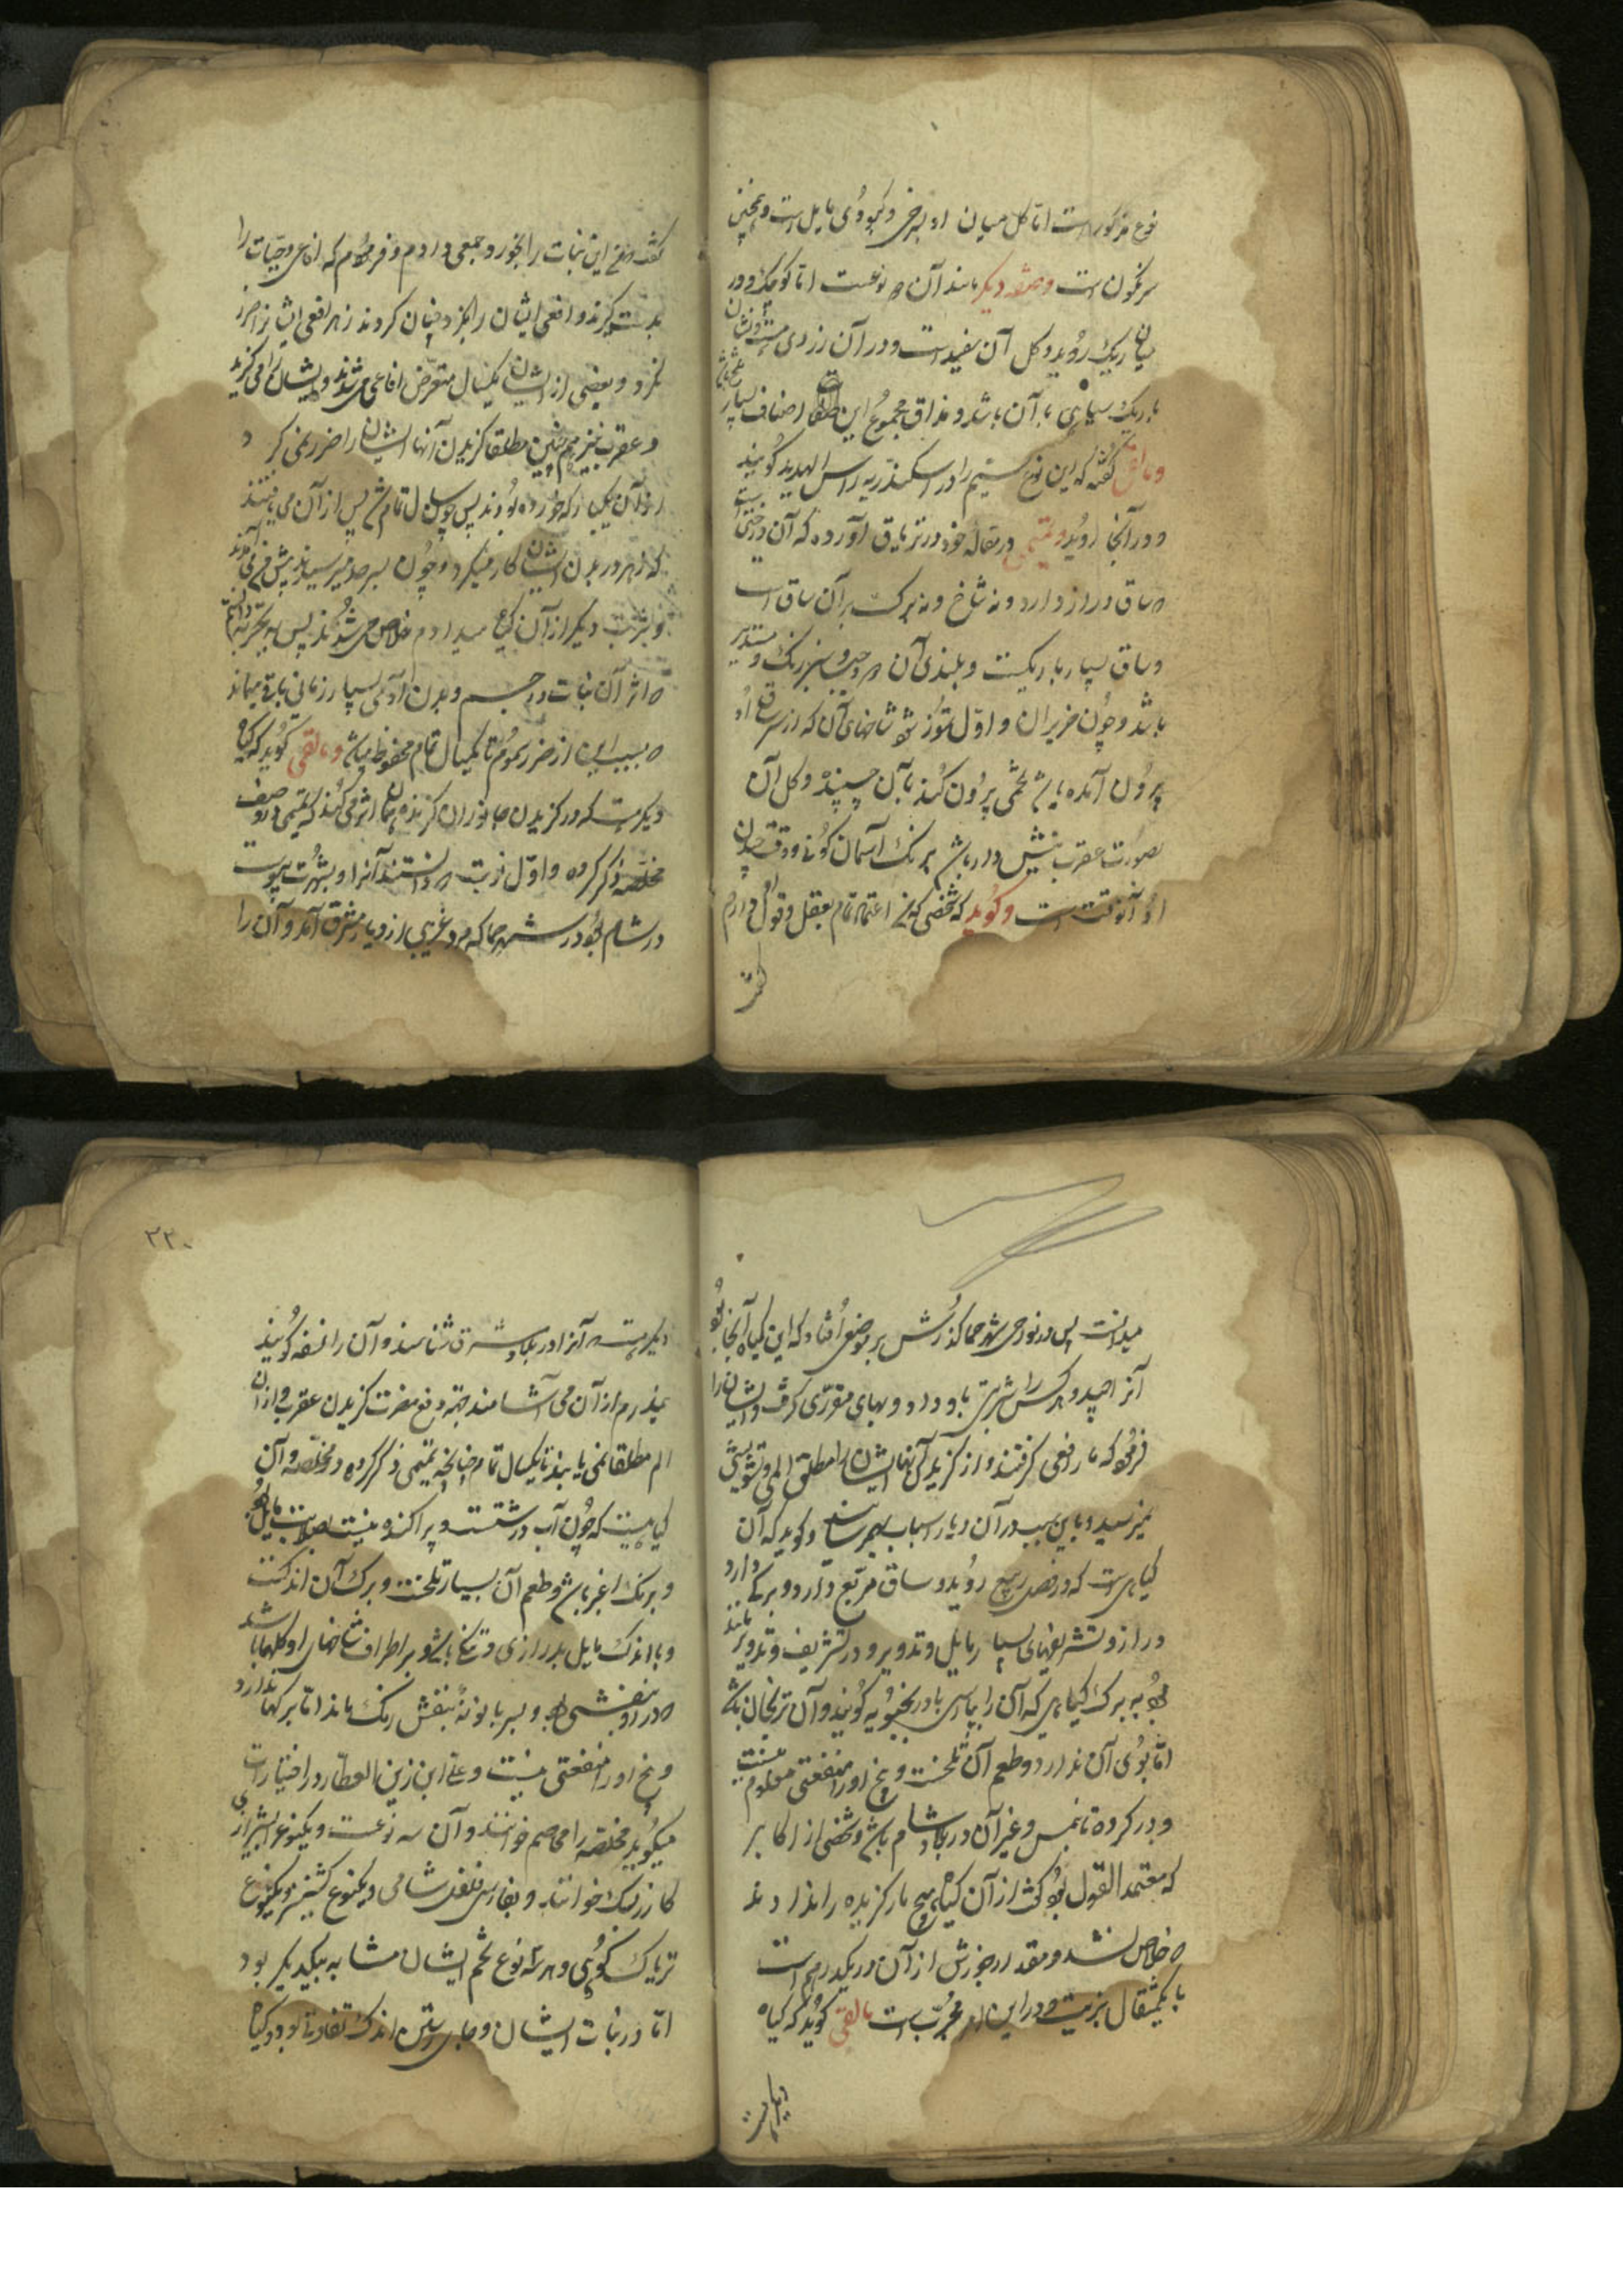 نوع مذکور است اما گل میان او بسرخی و کبودی مایل است و همچنین
سرنکون است و صنف دیکر مانند آن نوعست اما کوچک و در
میان ریک روید و کل آن سفید است و در آن زردی
باریک سیاهی با آن باشد و مذاق مجموع این اصناف بسیار تلخ باشد
و مالقی کفته که این نوع سیم را در اسکندریه راس الهدهد کویند
و در آنجا روید و تمیمی در مقاله خود در تریاق آورده که آن درختی است
که ساق دراز دارد و نه شاخ و نه برک بر آن ساق است
و ساق بسیار باریکست و بلندی آن و سبز رنک و مستدیر
باشد و چون حزیران و اول تموز شود شاخهای آن که از ساق او
بیرون آمده باشد تخمی بیرون کند بآن چسپنده و کل آن
بصورت عقرب نیش دار باشد برنک آسمان کونی و وقت چیدن
او آنوقت است و کوید که شخصی که اعتماد تمام بعقل و قول او دارم
کفت
کفت که من این نبات را بخورد جمعی دادم و فرمودم که افاعی و حیات را
بدست کیرند و افعی ایشان را بکزد چنان کردند زهر افعی ایشانرا ضرر
نکرد و بعضی از ایشان یکسال متعرض افاعی می شدند و ایشان را می کزید
و عقرب نیز همچنین مطلقا کزیدن آنها ایشان را ضرر نمی کرد
از آن یکبار که خورده بودند پس چون سال تمام شد پس از آن می یافتند
که زهر در بدن ایشان کار میکرد و چون بسرحد میرسیدند پیش من می آمدند
و شربت دیکر از آن کیاه میدادم خلاص می شدند پس بتجربه دانستم
که اثر آن نبات در جسم و بدن آدمی بسیار زمانی باقی میماند
که بسبب این از ضرر سموم تا یکسال تمام محفوظ میباشد و مالقی کوید که کیاه
دیکرست که در کزیدن جانوران کزنده همان اثر می کند که تمیمی در وصف
مخلصه ذکر کرده و اول نوبت که دانستند آنرا و بشهرت پیوست
در شام بود در شهر حما که مرد غریبی از دیار مشرق آمد و آن را
میدانست پس در نواحی شهر حما کذرش بر موضعی افتاد که این کیاه آنجا بود
آنرا چید و هر کس را شربتی باو داد و بهای مقرری کرفت و ایشان را
فرمود که مار افعی کرفتند و از کزیدن آنها ایشان را مطلق المی و تشویشی
نمیرسید و باین سبب در آن دیار اسباب بهم رسانید و کوید که آن
کیاهی است که در فصل ربیع روید و ساق مربع دارد و برکی دارد
دراز و تشریفهای بسیار مایل بتدویر و در تشریف و تدویر مانند
بود به برک کیاهی که آن را بپارسی بادرنجبویه کویند و آن ترنجان باشد
اما بوی آن ندارد و طعم آن تلخست و بیخ او را منفعتی معلوم نیست
و در کرده نابلس و غیر آن در بلاد شام باشد و شخصی از اکابر
که معتمد القول بود کفت از آن کیاه هیچ مار کزیده را ندادند
که خلاص نشد و مقدار خورش از آن دو یکدرهم است
با یکمثقال بزیت و در این امر مجربست مالقی کوید که کیاه
دیکرست
۲۳۰
دیکرست که آنرا در بلاد مشرق شناسند و آن را نسفه کویند
نیمدرم از آن می آشامند بجهة دفع مضرت کزیدن عقرب و از آن
الم مطلقا نمی یابند تا یکسال تمام چنانچه تمیمی ذکر کرده در مخلصه و آن
کیاهیست که چون آب در شتست و پراکنده نیست بصلابت مایل بود
و برنک اغبر باشد و طعم آن بسیار تلخست و برک آن اندکست
و با اندک مایل بدرازی و تنکی باشد و بر اطراف شاخهای او کلها باشد
که در او بنفشی بود و بسر بابونه بنفش رنک ماند اما برکها ندارد
و بیخ او را منفعتی نیست و علی ابن زین العطار در اختیارات
میکوید مخلصه را محاصم خوانند و آن سه نوعست و یکنوع بشیرازی
کازرلک خوانند و بفارسی فلفل شامی و یکنوع کشنیز و یکنوع
تریاک کوهی و هر سه نوع تخم ایشان مشابه بیکدیکر بود
اما در نبات ایشان و جای رستن اندک تفاوتی بود و کیاه